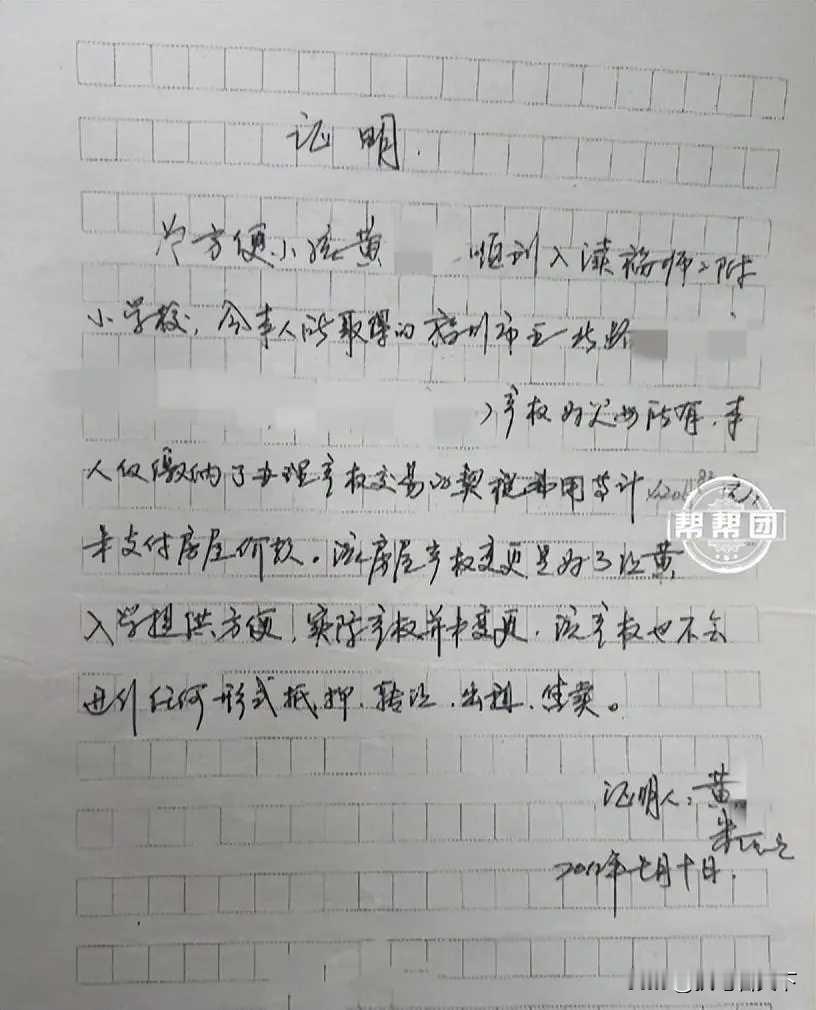 证明.
为方便小孩黄 顺利入读福师二附
小学校，今本人所取得的福州市五北路
）产权为父母所有，本
人仅缴纳了办理产权交易的契税费用等计 元，
未支付房屋价款。该房屋产权变更是为了让黄
入学提供方便，实际产权并未变更，该产权也不会
进行任何形式抵押、转让、出租、售卖。
帮帮团
证明人：黄
朱
2012年七月十日.